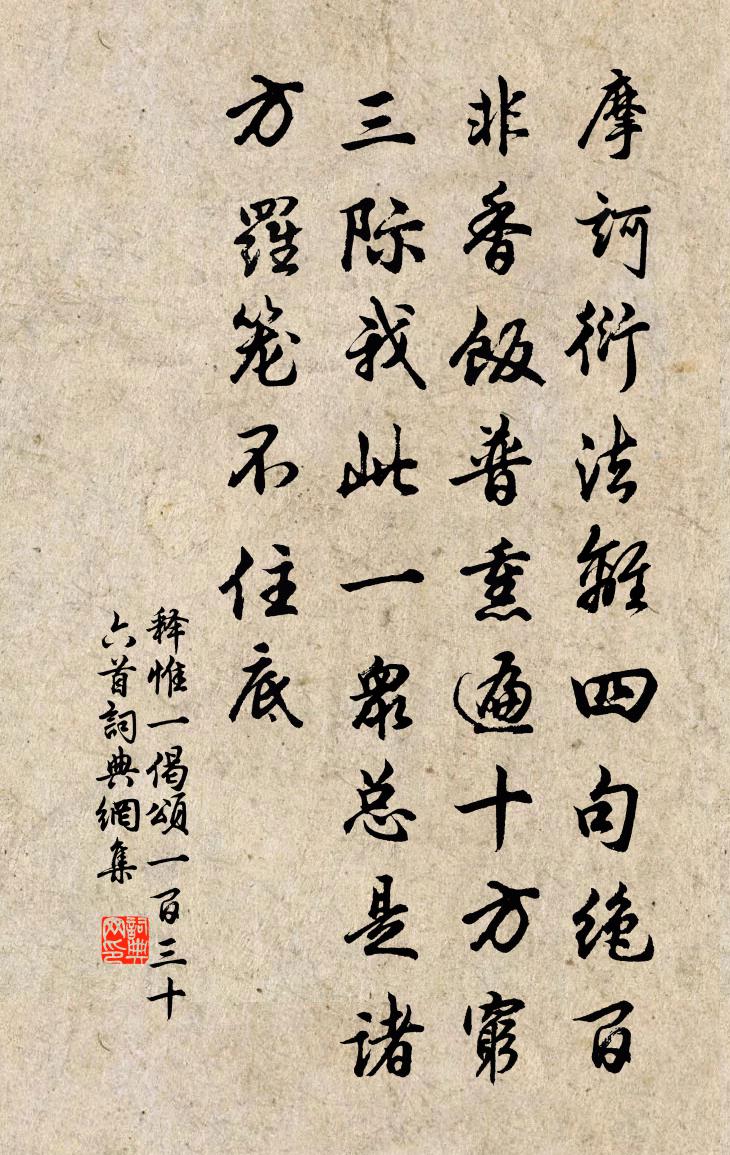 摩訶衍法離四句绝百
非香飯普熏遍十方窮
三际我此一衆总是诸
方羅笼不住底
释惟一偈頌一百三十
六首詞典網集
詞典网印